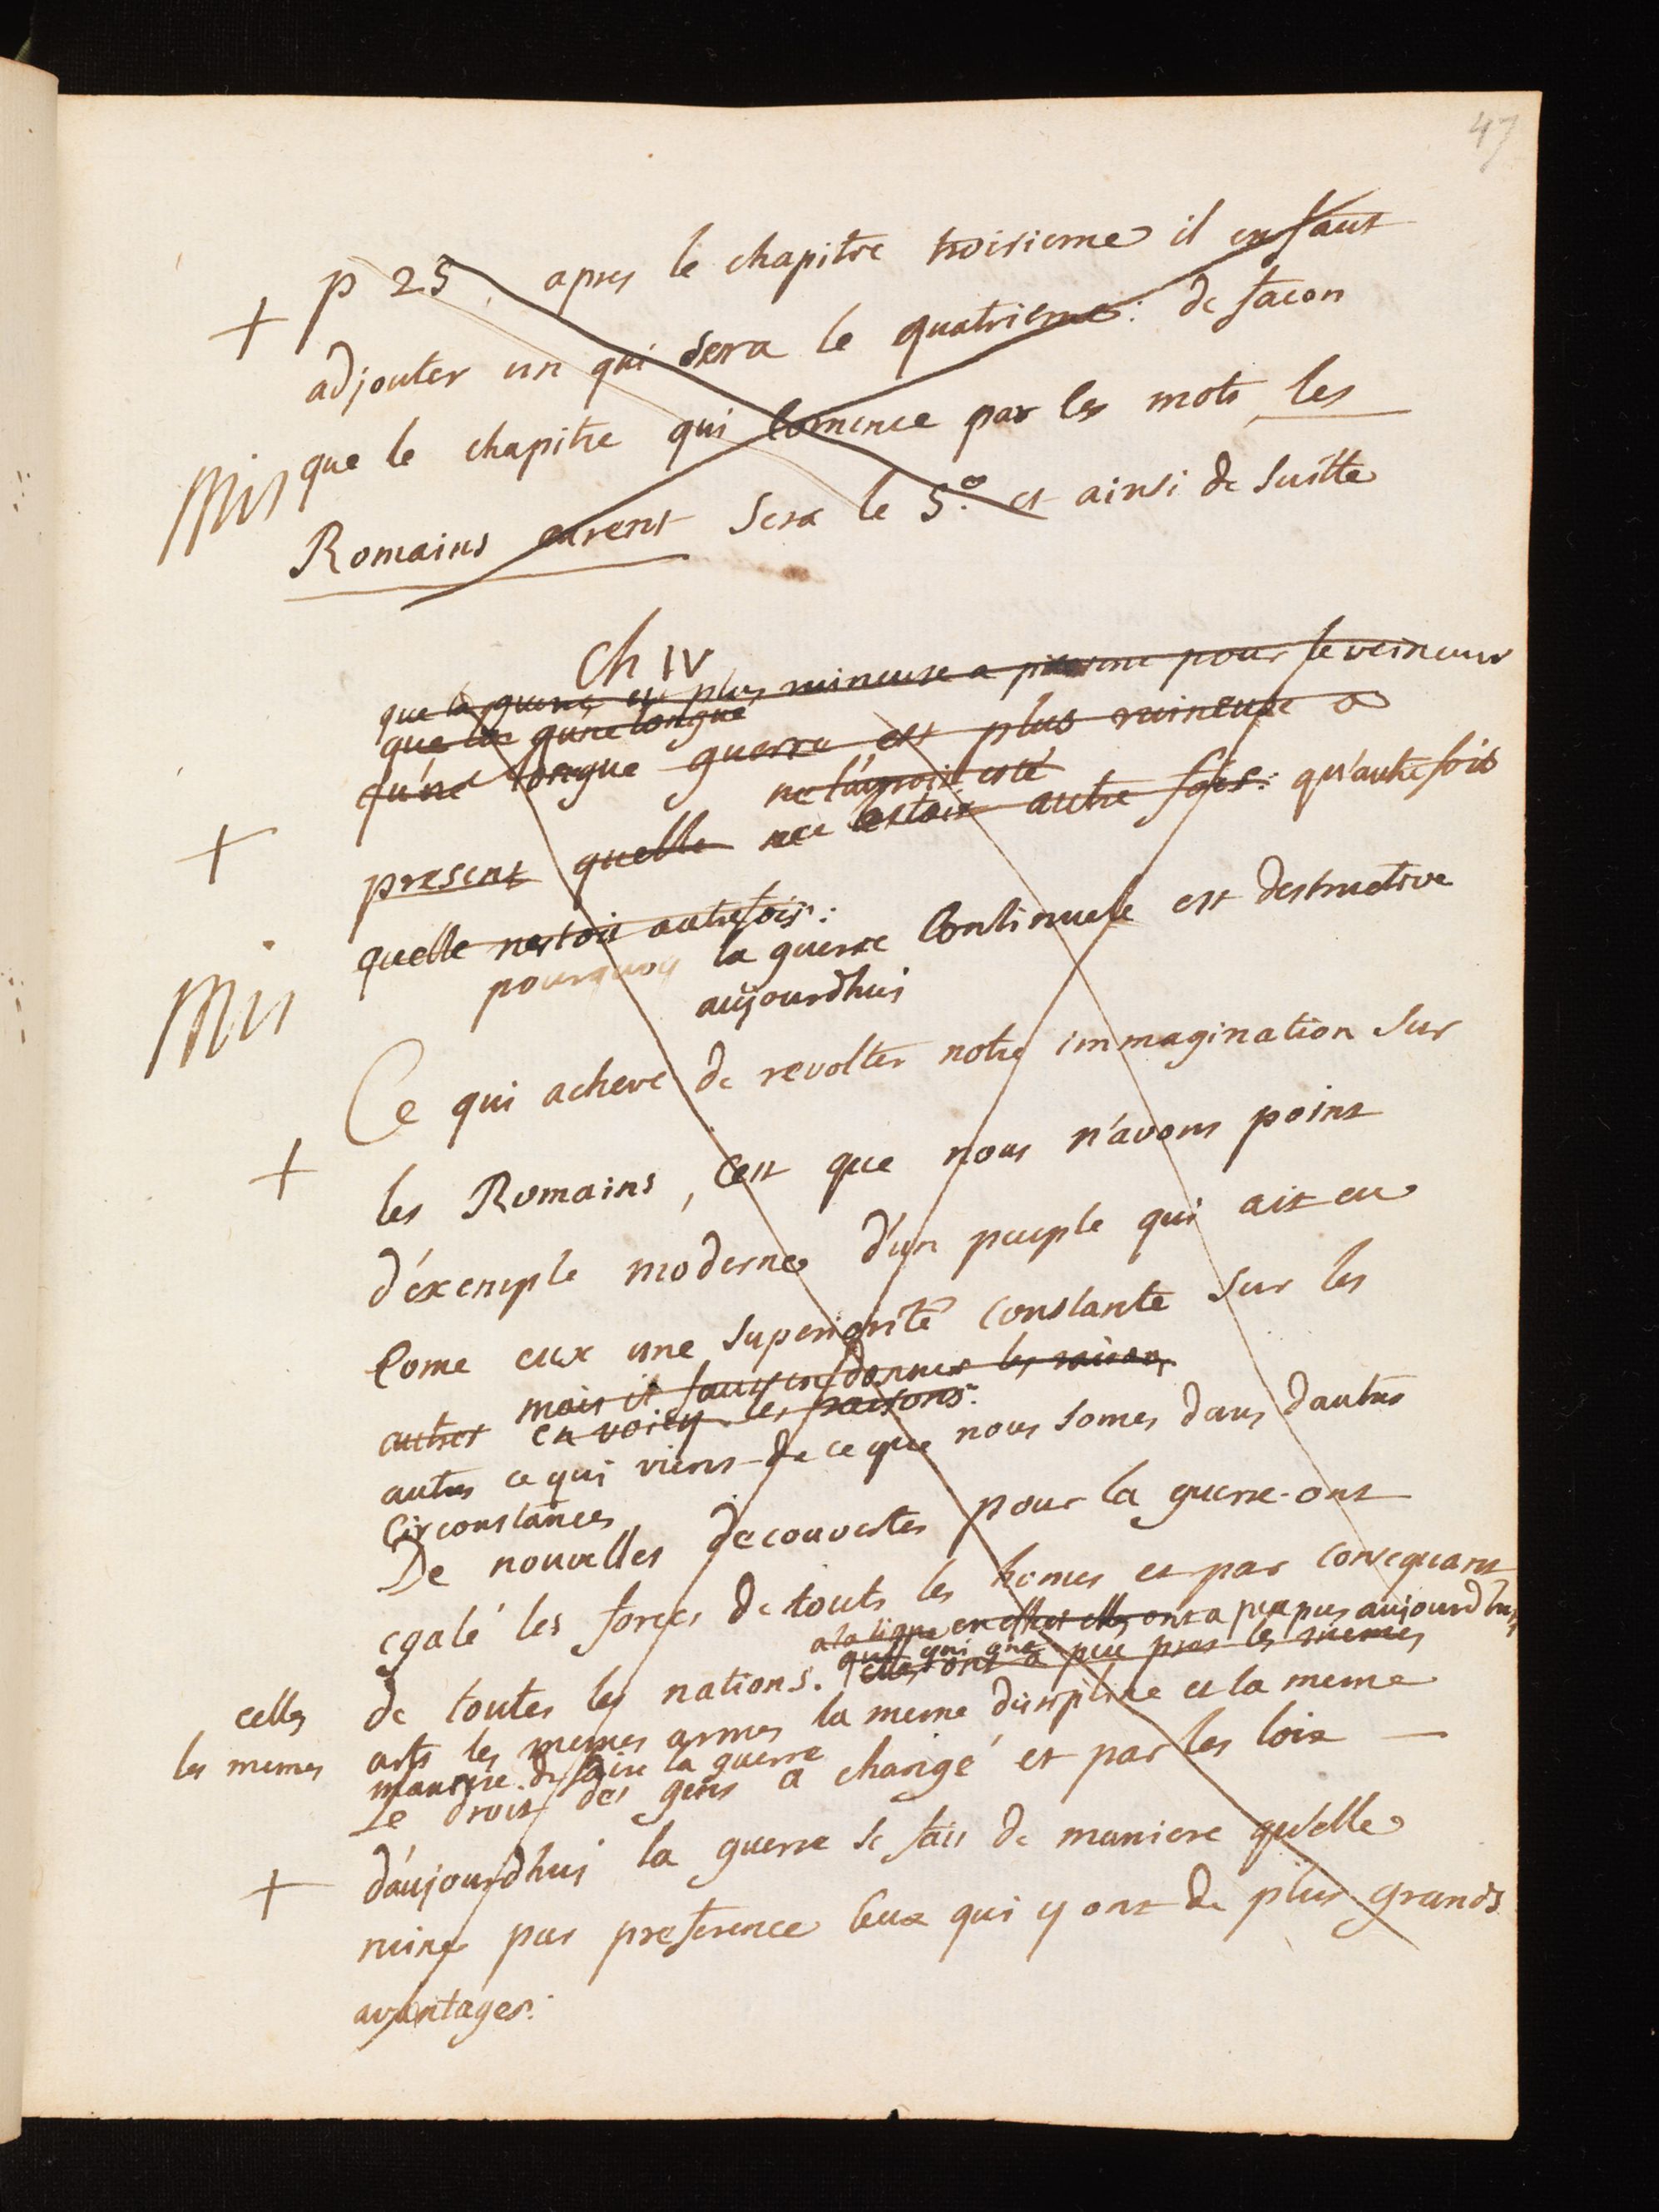 47
+ p 25. apres le chapitre troisieme il en faut
adjouter un qui sera le quatrieme: de facon
Mis que le chapitre qui comence par les mots les
Romains eurent sera le 5.e et ainsi de suitte
Ch IV
que la guerre est plus ruineuse a present pour le veincueur
que la qu'une longue
qu'une longue guerre est plus ruineuse a
ne l'auroit esté
+ present quelle ne l'estoit autre fois: qu'autrefois
quelle nestoit autrefois:
Mis pourquoy la guerre continuele est destructive
aujourdhui
Ce qui acheve de revolter notre immagination sur
+ les Romains, cest que nous n'avons point
d'éxemple moderne d'un peuple qui ait eu
come eux une superiorité constante sur les
mais il faut en donner les raisons
autres en voicy les raisons:
autres ce qui vient de ce que nous somes dans dautres
circonstances
De nouvelles decouvertes pour la guerre ont
egalé les forces de touts les homes et par consequant
a la ligne en effet elles ont a peu pres aujourdhuy
celles de toutes les nations. elles ont a peu pres les memes
les memes arts les memes armes la meme discipline et la meme
maniere de faire la guerre
Le droit des gens a changé et par les loix —
d'aujourdhui la guerre se fait de maniere qu'elle
+ ruine par preference ceux qui y ont de plus grands
avantages: